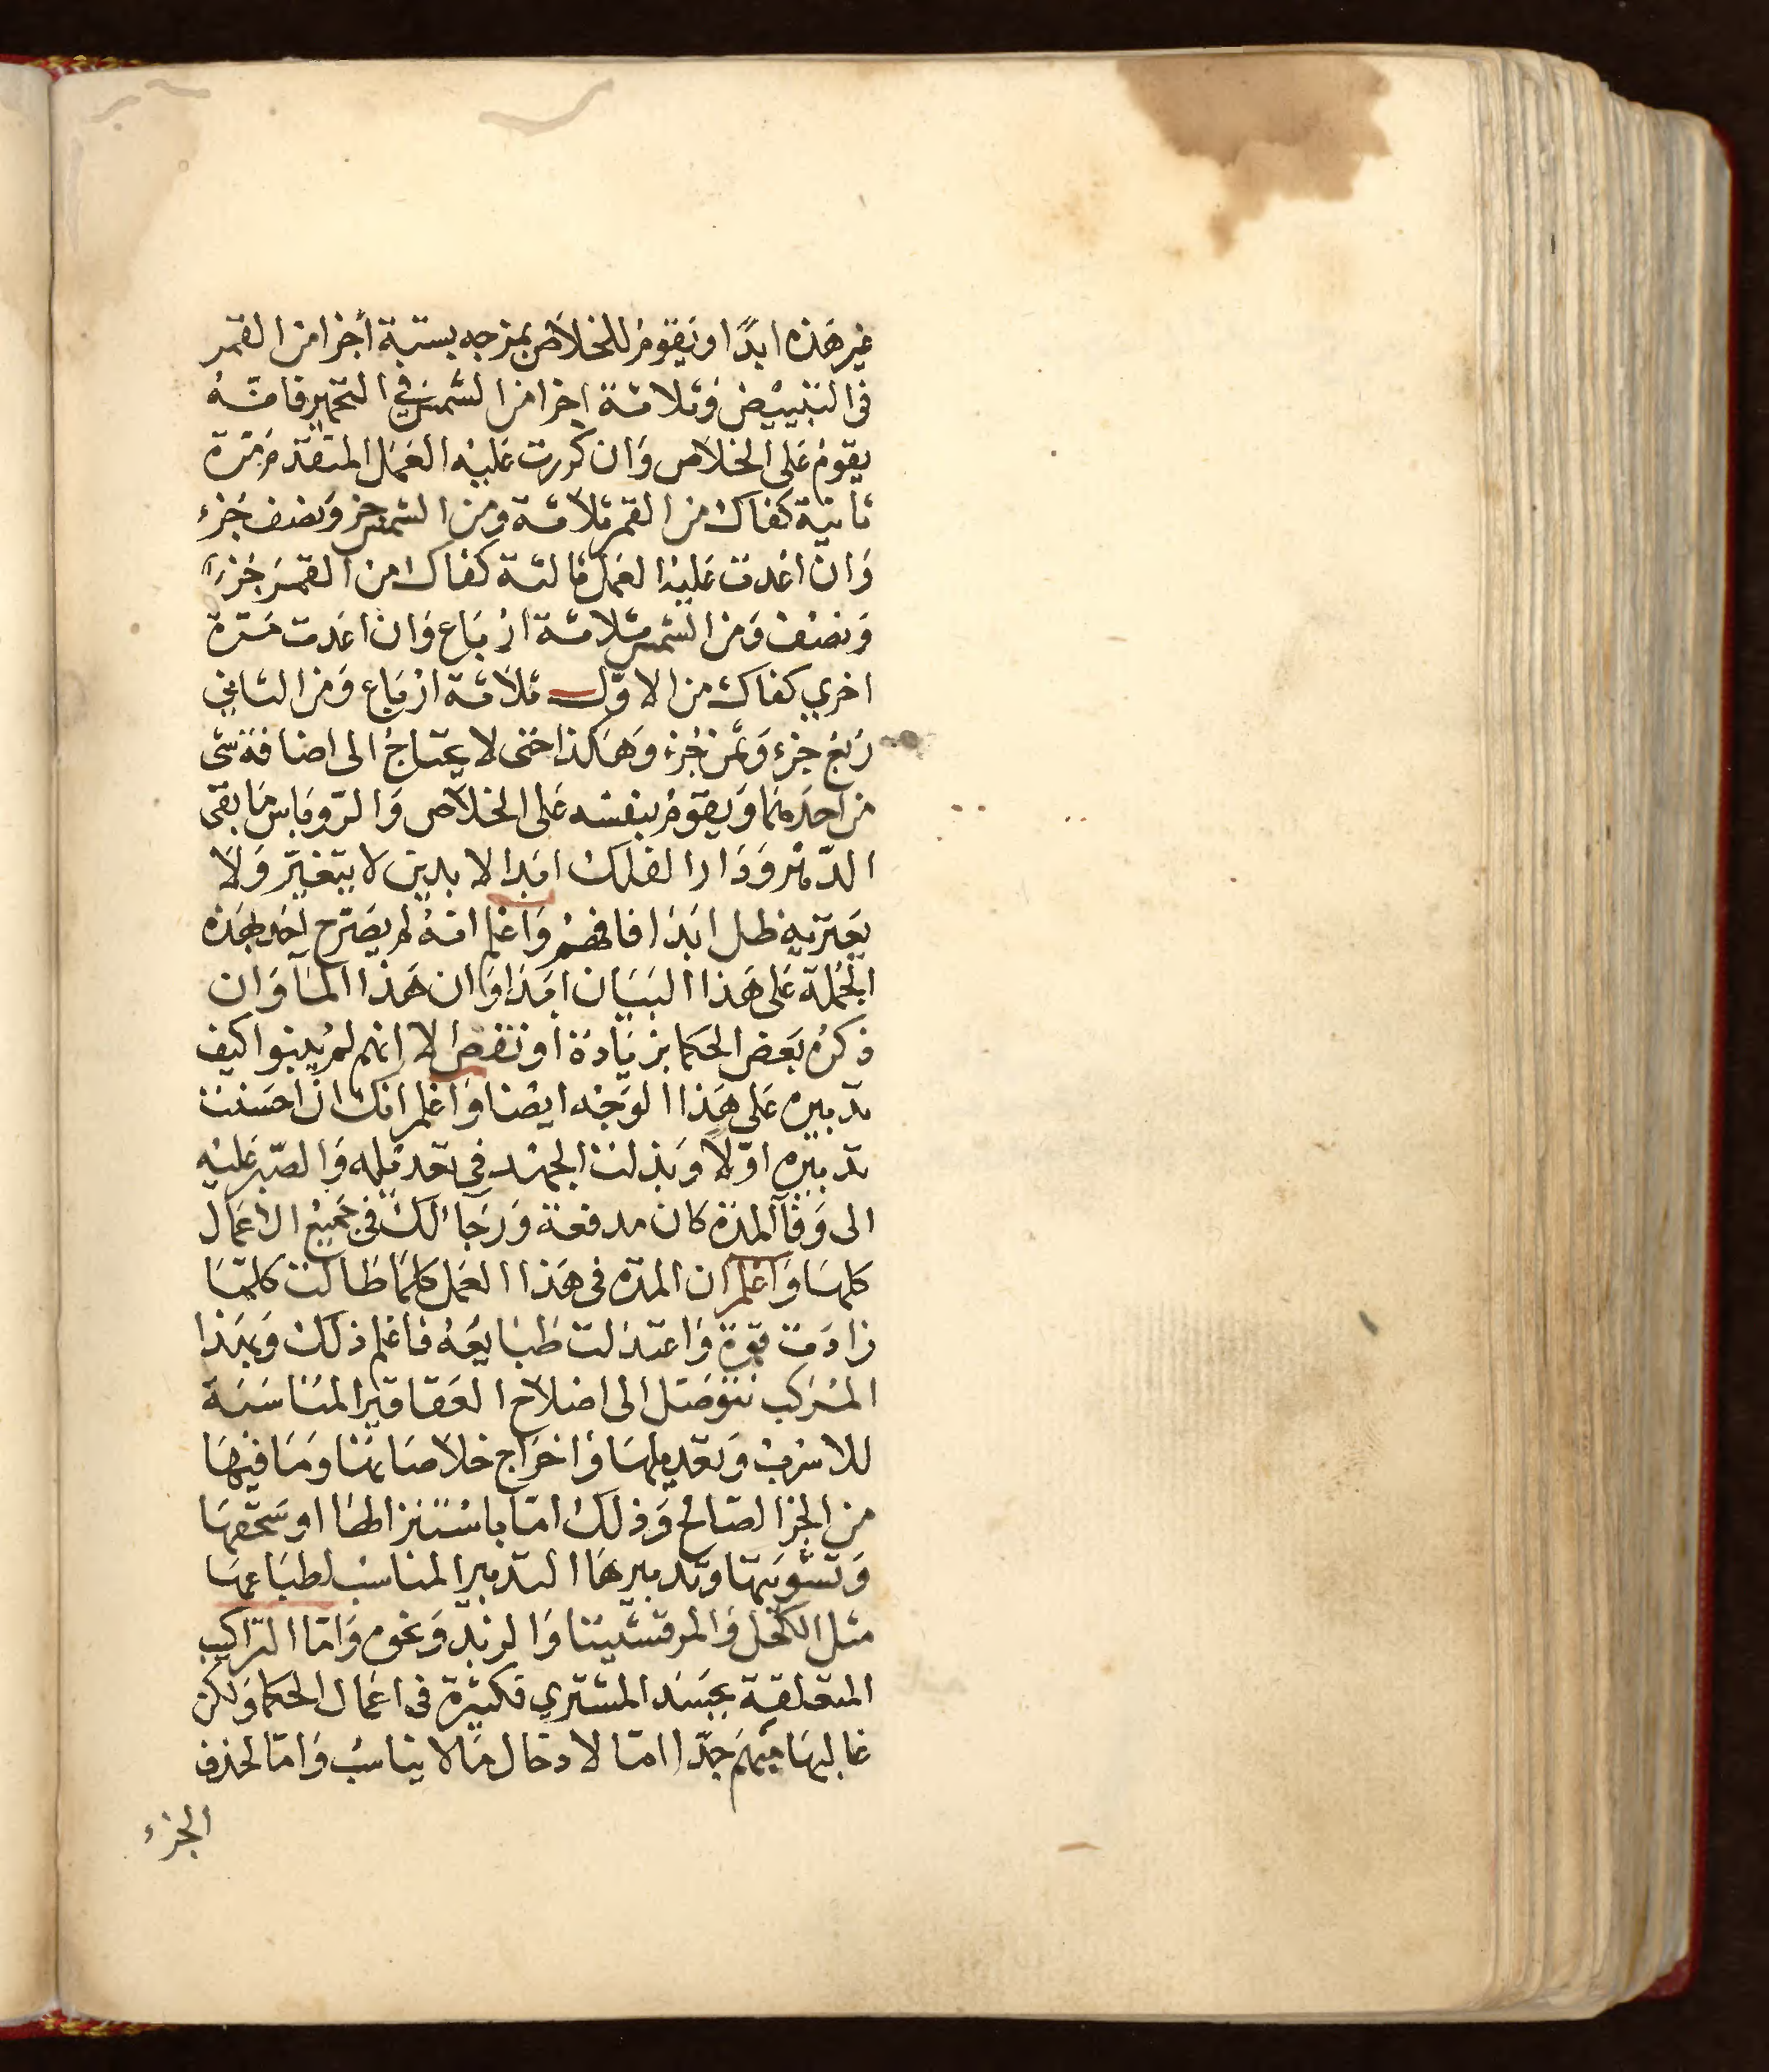 غير هذه ابدًا ويقوم للخلاص بمزجه بستة أجزا من القمر
في التبييض وثلاثة اجزا من الشمس في التحمير فانه
يقوم على الخلاص وان كررت عليه العمل المتقدم مرة
ثانية كفاك من القمر ثلاثة ومن الشمس جز ونصف جزء
وان اعدت عليه العمل ثالثة كفاك من القمر جزءا
ونصف ومن الشمس ثلاثة ارباع وان اعدت مرة
اخري كفاك من الاول ثلاثة ارباع ومن الثاني
ربع جزء وثمن جزء وهكذا حتى لا يحتاج الى اضافة شى
من احدهما ويقوم بنفسه على الخلاص والروباس ما بقى
الدهر ودار الفلك ابدا لابدين لا يتغير ولا
يعتريه ظل ابدا فافهم واعلم انه لم يصرح احد بهذه
الجملة على هذا البيان ابدا وان هذا الما وان
ذكره بعض الحكما بزيادة او نقص الا انهم لم يبينوا كيف
تدبيره على هذا الوجه ايضا واعلم انك ان احسنت
تدبيره اولا وبذلت الجهد في تعديله والصبر عليه
الى وفا المدة كان مدفعة ورجا لك في جميع الاعمال
كلها واعلم ان المدة في هذا العمل كلما طالت كلما
زادت قوة واعتدلت طبايعه فاعلم ذلك وبهذا
المركب نتوصل الى اصلاح العقاقير المناسبة
للاسرب وتعديلها واخراج خلاصاتها وما فيها
من الجز الصالح وذلك اما باستنزالها او سحقها
وتشويتها وتدبيرها التدبير المناسب لطباعها
مثل الكحل والمرقشيثا والرند ونحوه واما التراكيب
المتعلقة بجسد المشتري فكثيرة في اعمال الحكما ولكن
غالبها مبهم جدا اما لادخال ما لا يناسب واما لحذف
الجزء